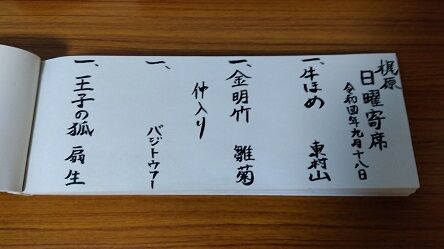 梶原
日曜寄席
令和四年九月十八日
一、牛ほめ 東村山
一、金明竹 雛菊
仲入り
一、 バジトウフー
一、王子の狐 扇生